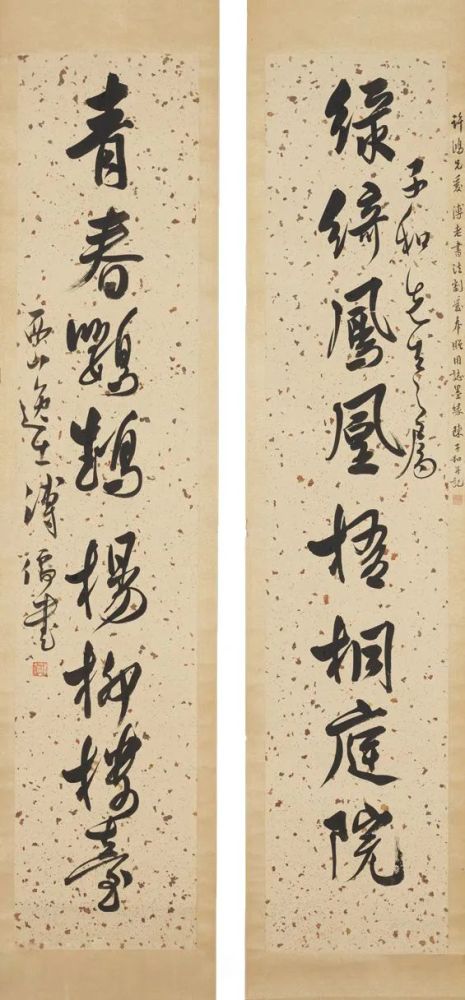 許鴻兄愛溥老書法割愛奉贈用誌墨緣 陳子和并記
子和先生之屬
綠綺鳳凰梧桐庭院
青春鸚鵡楊柳樓臺
西山逸士溥儒書